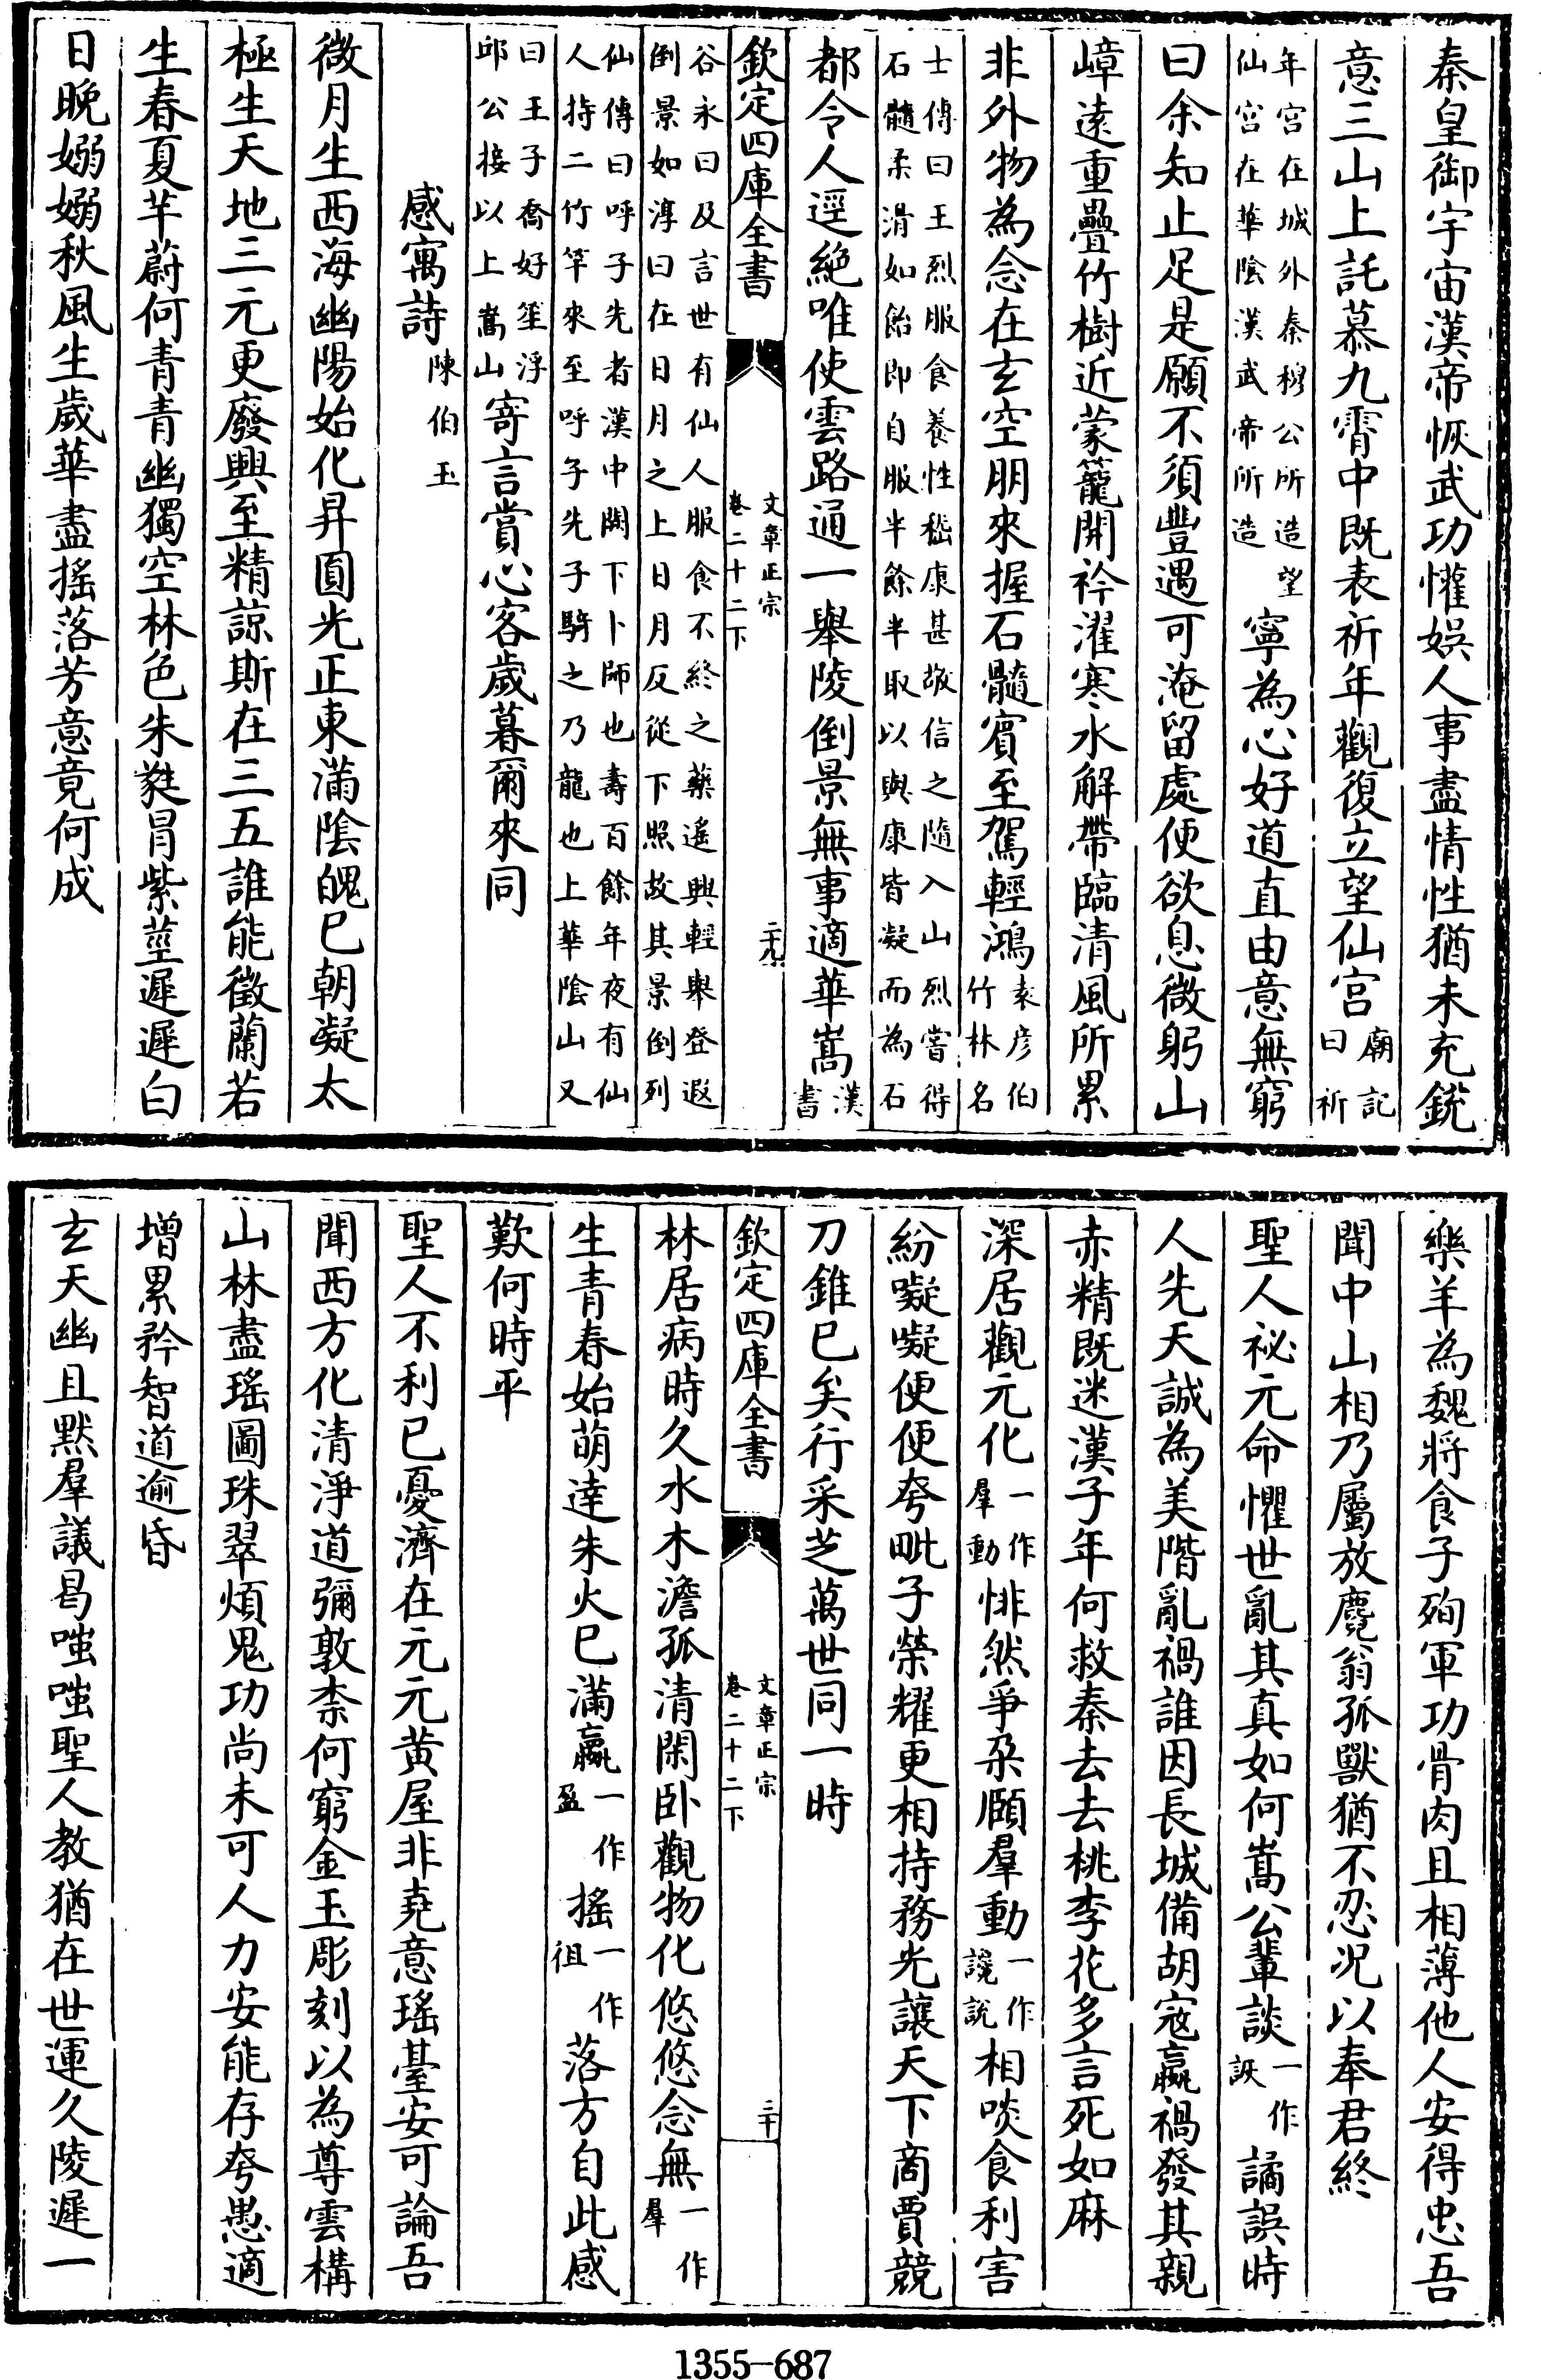 秦皇御宇宙漢帝恢武功懽娛人事盡情性猶未充銳
意三山上託慕九霄中既表祈年觀復立望仙宮廟記曰祈
年宮在城外秦穆公所造望仙宮在華陰漢武帝所造寧為心好道直由意無窮
曰余知止足是願不須豐遇可淹留處便欲息微躬山
嶂遠重疊竹樹近蒙籠開衿濯寒水解帶臨清風所累
非外物為念在玄空朋來握石髓賓至駕輕鴻袁彦伯竹林名
士傳曰王烈服食養性嵇康甚敬信之隨入山烈嘗得石髓柔滑如飴即自服半餘半取以與康皆凝而為石
都令人逕絕唯使雲路通一舉陵倒景無事適華嵩漢書
欽定四庫全書
文章正宗
卷二十二下
二十九
谷永曰及言世有仙人服食不終之藥遙興輕舉登遐倒景如淳曰在日月之上日月反從下照故其景倒列
仙傳曰呼子先者漢中關下卜師也壽百餘年夜有仙人持二竹竿來至呼子先子騎之乃龍也上華陰山又
曰王子喬好笙浮邱公接以上嵩山寄言賞心客歲暮爾來同
感寓詩陳伯玉
微月生西海幽陽始化昇圓光正東滿陰魄已朝凝太
極生天地三元更廢興至精諒斯在三五誰能徵蘭若
生春夏芊蔚何青青幽獨空林色朱蕤冒紫莖遲遲白
日晚嫋嫋秋風生歲華盡搖落芳意竟何成
樂羊為魏將食子殉軍功骨肉且相薄他人安得忠吾
聞中山相乃屬放麑翁孤獸猶不忍況以奉君終
聖人祕元命懼世亂其真如何嵩公輩談一作詼譎誤時
人先天誠為美階亂禍誰因長城備胡寇嬴禍發其親
赤精既迷漢子年何救秦去去桃李花多言死如麻
深居觀元化一作羣動悱然爭朶頤羣動一作讒說相啖食利害
紛㘈㘈便便夸毗子榮耀更相持務光讓天下商賈競
刀錐已矣行采芝萬世同一時
欽定四庫全書
文章正宗
卷二十二下
三十
林居病時久水木澹孤清閑卧觀物化悠悠念無一作羣
生青春始萌達朱火已滿嬴一作盈搖一作徂落方自此感
歎何時平
聖人不利已憂濟在元元黃屋非堯意瑤臺安可論吾
聞西方化清淨道彌敦柰何窮金玉彫刻以為尊雲構
山林盡瑤圖珠翠煩鬼功尚未可人力安能存夸愚適
增累矜智道逾昏
玄天幽且默羣議曷嗤嗤聖人教猶在世運久陵遲一
1355—687